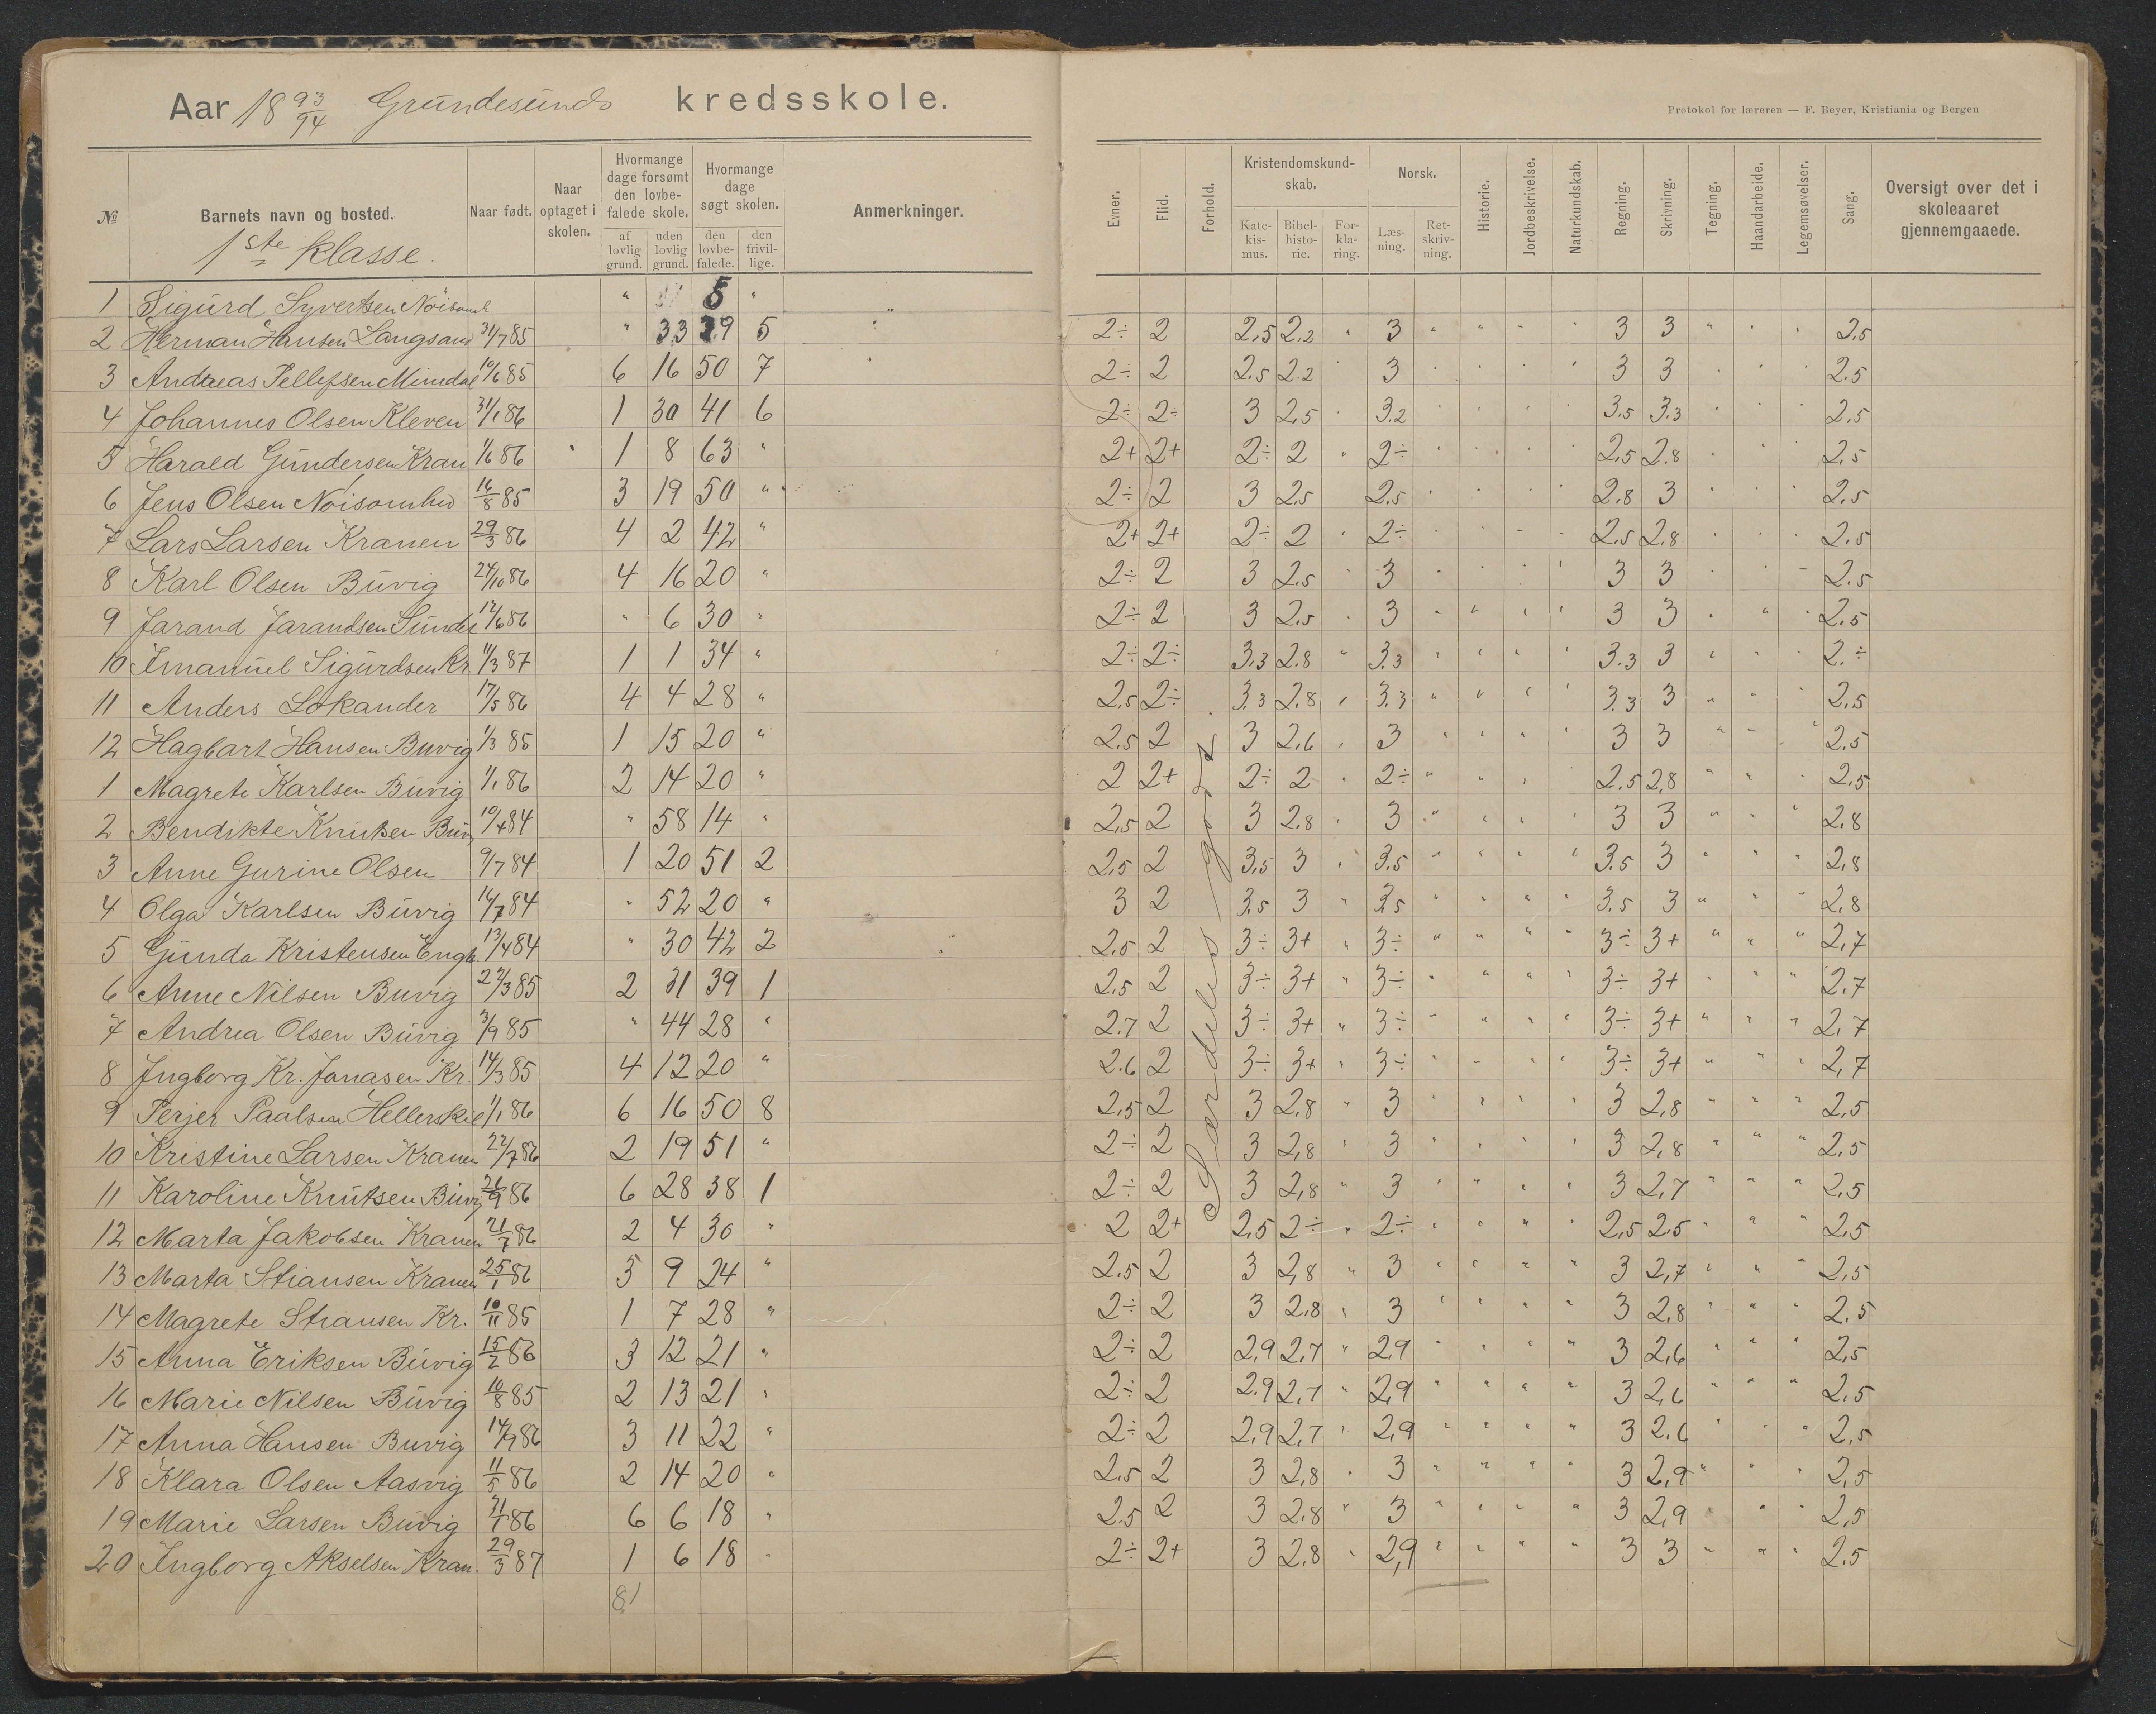 Aar 18 93/94 Grundesunds kredsskole.
Protokol for læreren — F. Beyer, Kristiania og Bergen
№ Barnets navn og bosted. Naar født. Naar optaget i skolen. Hvormange dage forsømt den lovbefalede skole. af lovlig grund. uden lovlig grund. Hvormange dage søgt skolen. den lovbefalede. den frivillige. Anmerkninger. Evner. Flid. Forhold. Kristendomskundskab. Katekismus. Bibelhistorie. Forklaring. Norsk. Læsning. Retskrivning. Historie. Jordbeskrivelse. Naturkundskab. Regning. Skrivning. Tegning. Haandarbeide. Legemsøvelser. Sang. Oversigt over det i skoleaaret gjennemgaaede.
1ste klasse.
1 Sigurd Syvertsen " 5 "
2 Herman Hansen Langsand 31/7 85 " 33 39 5 2÷ 2 2,5 2.2 " 3 " " " " 3 3 " " " 2.5
3 Andreas Tellefsen 10/6 85 6 16 50 7 2÷ 2 2.5 2.2 3 " " " " 3 3 " " " 2.5
4 Johannes Olsen Kleven 31/1 86 1 30 41 6 2÷ 2÷ 3 2.5 " 3.2 " " " " 3.5 3.3 " " " 2.5
5 Harald Gundersen Kran 1/6 86 " 1 8 63 " 2+ 2+ 2÷ 2 " 2÷ " " " " 2.5 2.8 " " " 2.5
6 Jens Olsen Nöisomhed 16/8 85 3 19 50 " 2÷ 2 3 2.5 2.5 " " " " 2.8 3 " " " 2.5
7 Lars Larsen Kranen 29/3 86 4 2 42 " 2+ 2+ 2÷ 2 " 2÷ " " " " 2.5 2.8 " " " 2.5
8 Karl Olsen Buvig 24/10 86 4 16 20 " 2÷ 2 3 2.5 " 3 " " " " 3 3 " " " 2.5
9 Jarand Jarandsen 12/6 86 " 6 30 " 2÷ 2 3 2.5 " 3 " " " " 3 3 " " " 2.5
10 Imanuel Sigurdsen Kr. 11/3 87 1 1 34 " 2÷ 2÷ 3.3 2.8 " 3.3 " " " " 3.3 3 " " " 2.÷
11 Anders Lokander 17/5 86 4 4 28 " 2.5 2÷ 3.3 2.8 " 3.3 " " " " 3.3 3 " " " 2.5
12 Hagbart Hansen Buvig 1/3 85 1 15 20 " 2.5 2 3 2.6 " 3 " " " " 3 3 " " " 2.5
1 Magrete Karlsen Buvig 1/1 86 2 14 20 " 2 2+ 2÷ 2 " 2÷ " " " 2.5 2,8 " " " 2,5
2 Bendikte Knutsen Buv 10/4 84 " 58 14 " 2.5 2 3 2.8 " 3 " " " " 3 3 " " " 2.8
3 Anne Gurine Olsen 9/7 84 1 20 51 2 2.5 2 3,5 3 " 3.5 " " " " 3.5 3 " " " 2,8
4 Olga Karlsen Buvig 16/7 84 " 52 20 " 3 2 3.5 3 " 3.5 " " " " 3.5 3 " " " 2,8
5 Gunda Kristensen Engh. 13/4 84 " 30 42 2 2.5 2 3÷ 3+ " 3÷ " " " " 3÷ 3+ " " " 2,7
6 Anne Nilsen Buvig 22/3 85 2 31 39 1 2.5 2 3÷ 3+ " 3÷ " " " " 3÷ 3+ " " " 2.7
7 Andrea Olsen Buvig 3/9 85 " 44 28 " 2.7 2 3÷ 3+ " 3÷ " " " " 3÷ 3+ " " " 2,7
8 Ingborg Kr. Janasen Kr. 14/3 85 4 12 20 " 2.6 2 3÷ 3+ " 3÷ " " " " 3÷ 3+ " " " 2,7
9 Terjer Paalsen 1/1 86 6 16 50 8 2,5 2 3 2,8 " 3 " " " " 3 2,8 " " " 2,5
10 Kristine Larsen Kranen 22/7 86 2 19 51 " 2÷ 2 3 2,8 " 3 " " " " 3 2,8 " " " 2,5
11 Karoline Knutsen Buvig 26/9 86 6 28 38 1 2÷ 2 3 2,8 " 3 " " " " 3 2,7 " " " 2,5
12 Marta Jakobsen Kranen 21/7 86 2 4 30 " 2 2+ 2,5 2÷ " 2÷ " " " " 2,5 2,5 " " " 2,5
13 Marta Stiansen Kranen 25/1 86 5 9 24 " 2.5 2 3 2,8 " 3 " " " " 3 2,7 " " " 2,5
14 Magrete Stiansen Kr. 10/11 85 1 7 28 " 2÷ 2 3 2.8 " 3 " " " " 3 2,8 " " " 2.5
15 Anna Eriksen Buvig 15/2 86 3 12 21 " 2÷ 2 2,9 2,7 " 2,9 " " " " 3 2,6 " " " 2,5
16 Marie Nilsen Buvig 10/8 85 2 13 21 " 2÷ 2 2.9 2,7 " 2,9 " " " " 3 2,6 " " " 2.5
17 Anna Hansen Buvig 14/9 86 3 11 22 " 2÷ 2 2,9 2,7 " 2,9 " " " " 3 2.6 " " " 2,5
18 Klara Olsen Aasvig 11/5 86 2 14 20 " 2.5 2 3 2,8 " 3 " " " " 3 2,9 " " " 2,5
19 Marie Larsen Buvig 31/1 86 6 6 18 " 2.5 2 3 2.8 " 3 " " " " 3 2,9 " " " 2,5
20 Ingborg Akselsen Kran. 29/3 87 1 6 18 " 2÷ 2+ 3 2.8 " 2,9 " " " " 3 3 " " " 2.5
81
Særdeles godt.